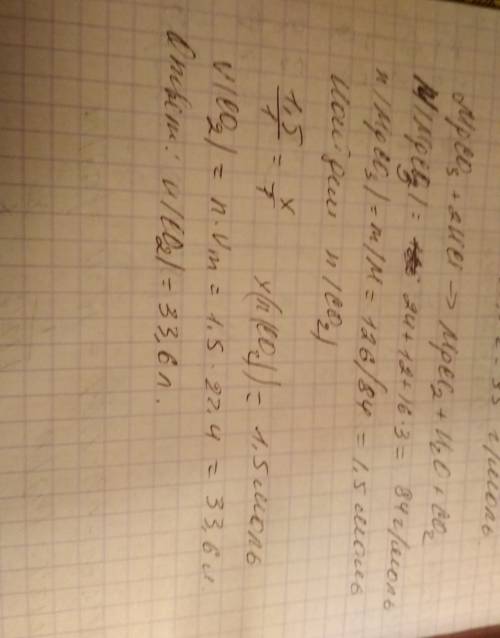 MgCO3 + 2HCl → MgCl2 + H2O + CO2
M(MgCO3) = 24+12+16·3 = 84 г/моль
n(MgCO3) = m/M = 126/84 = 1,5 моль
Найдем n(CO2)
1,5/1 = x/1 x(n(CO2)) = 1,5 моль
V(CO2) = n·Vm = 1,5·22,4 = 33,6 л.
Ответ: V(CO2) = 33,6 л.